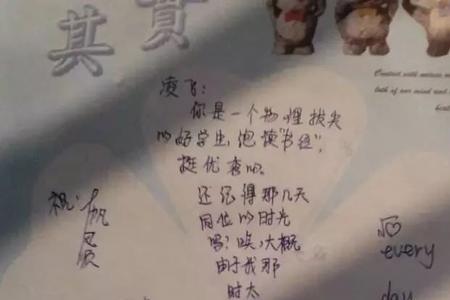 其贵
Contact with nature
both of our mind and
凌飞:
你是一个物理拔尖
的好学生,饱读“书经”,
挺优秀吧。
还记得那几天
同位的时光
吗?唉,大概
由于我那
时太
祝:帆
every
day